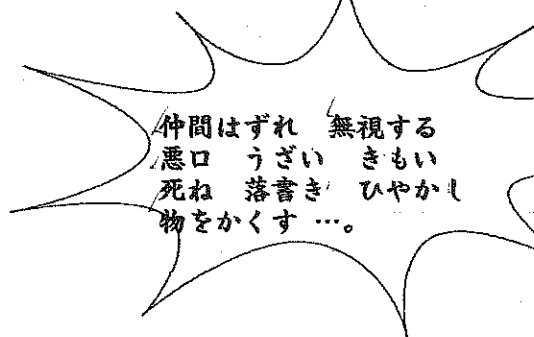 仲間はずれ　無視する
悪口　うざい　きもい
死ね　落書き　ひやかし
物をかくす　…。